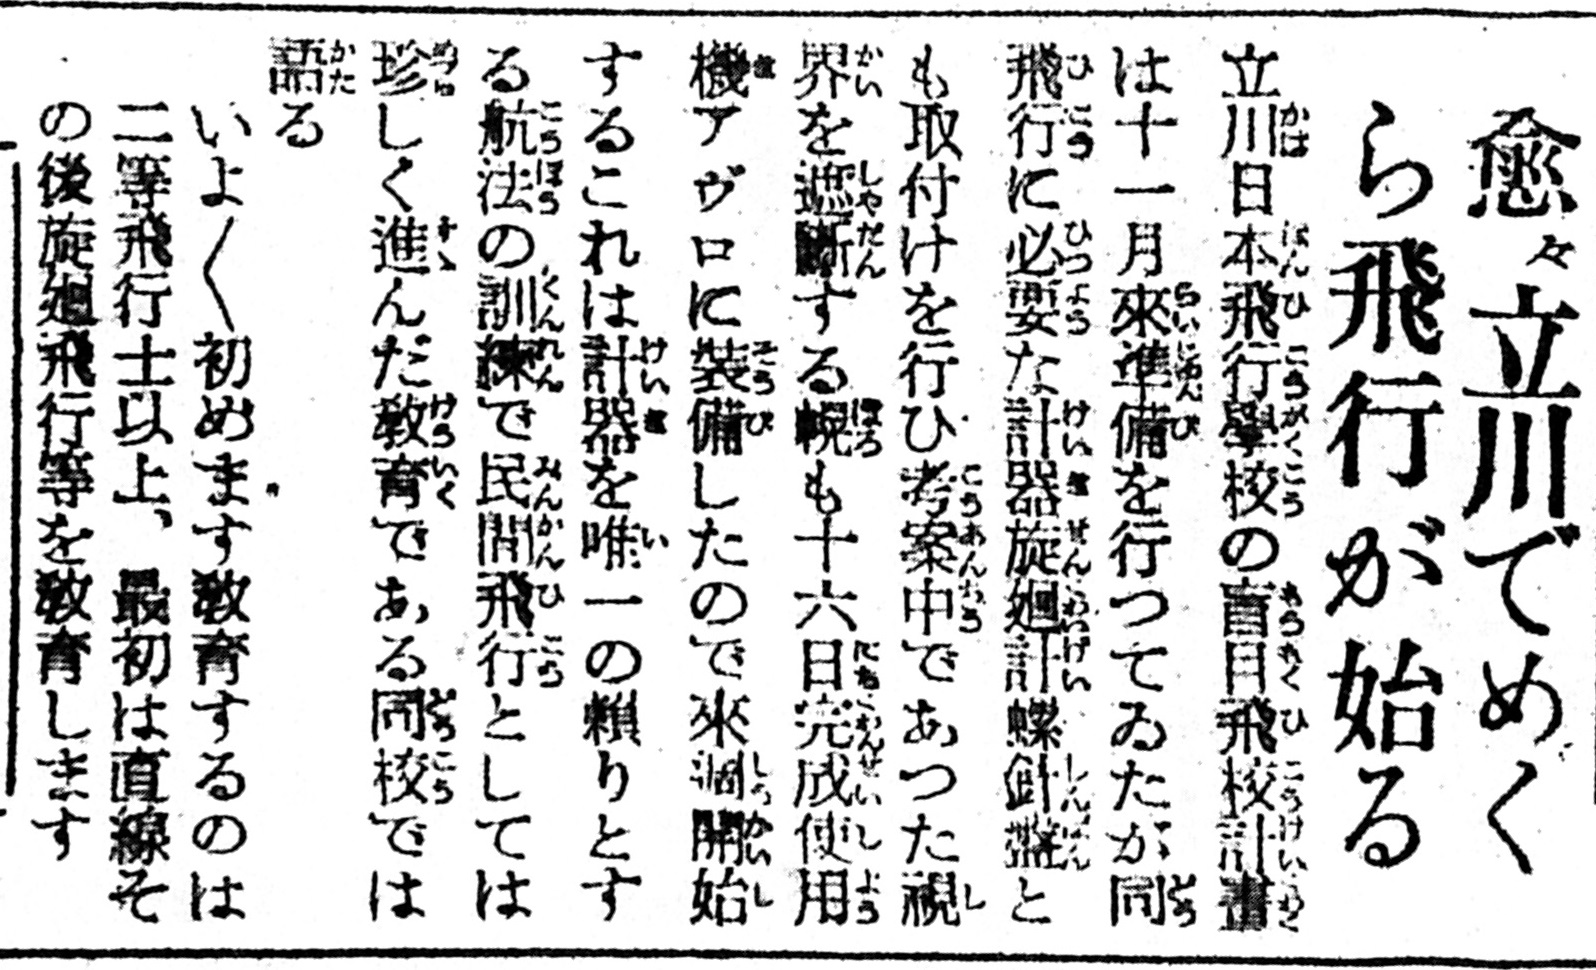 愈々立川でめく
ら飛行が始る
立川日本飛行學校の盲目飛校計畫
は十一月來準備を行つてゐたが同
飛行に必要な計器旋廻計螺針盤と
も取付けを行ひ考案中であつた視
界を遮斷する幌も十六日完成使用
機アヴロに裝備したので來週開始
するこれは計器を唯一の頼りとす
る航法の訓練で民間飛行としては
珍しく進んだ敎育である同校では
語る
いよ〱初めます敎育するのは
二等飛行士以上、最初は直線そ
の後旋廻飛行等を敎育します